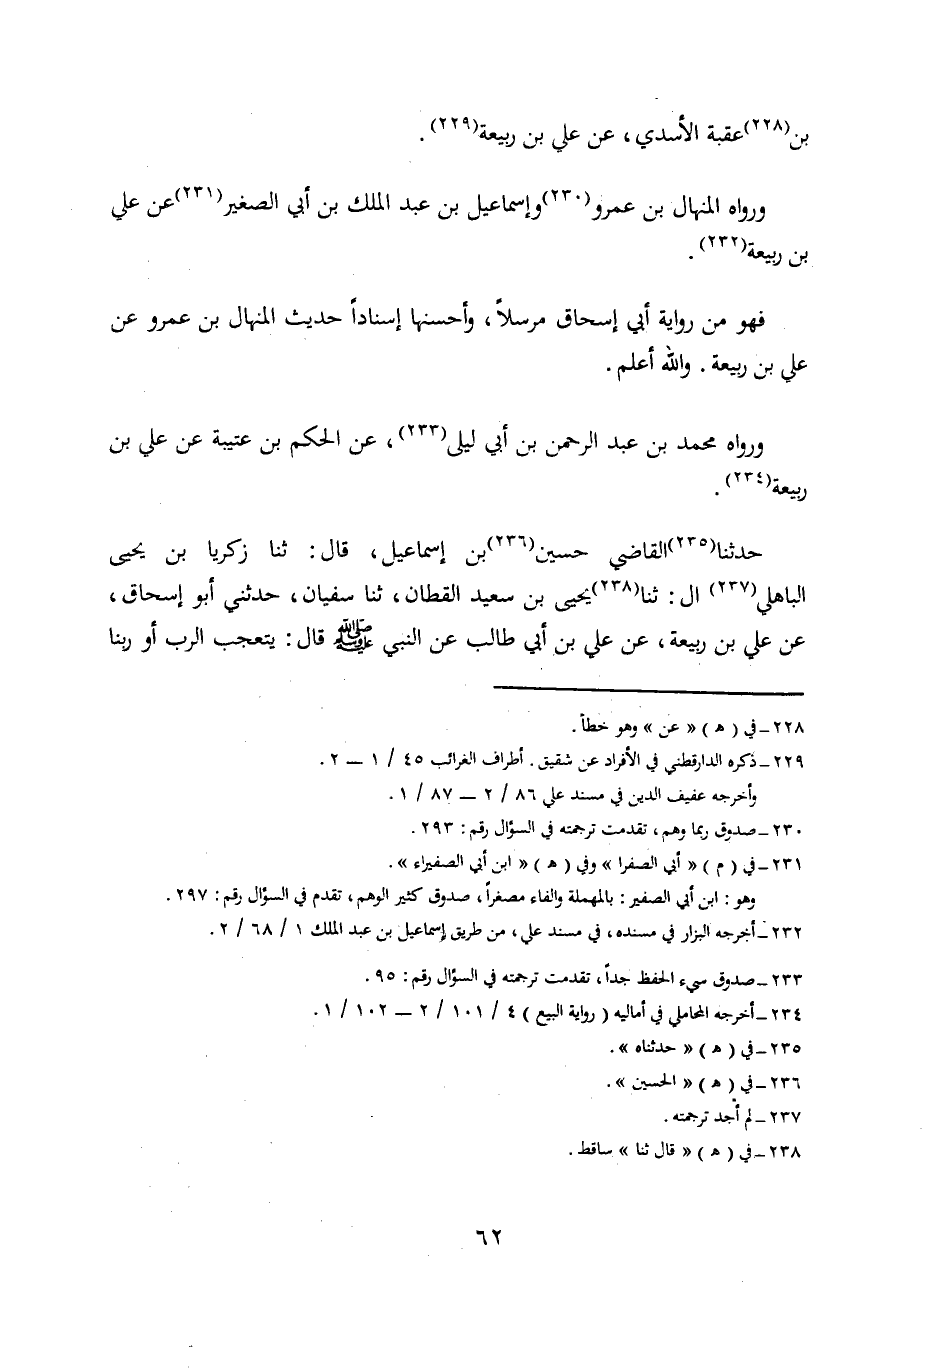 بن(٢٢٨)عقبة الأسدي، عن علي بن ربيعة(٢٢٩).
ورواه المنهال بن عمرو(٢٣٠)وإسماعيل بن عبد الملك بن أبي الصغير(٢٣١)عن علي
بن ربيعة(٢٣٢).
فهو من رواية أبي إسحاق مرسلاً، وأحسنها إسناداً حديث المنهال بن عمرو عن
علي بن ربيعة. والله أعلم.
ورواه محمد بن عبد الرحمن بن أبي ليلى(٢٣٣)، عن الحكم بن عتيبة عن علي بن
ربيعة(٢٣٤).
حدثنا(٢٣٥)القاضي حسين(٢٣٦)بن إسماعيل، قال: ثنا زكريا بن يحيى
الباهلي(٢٣٧) ال: ثنا(٢٣٨)يحيى بن سعيد القطان، ثنا سفيان، حدثني أبو إسحاق،
عن علي بن ربيعة، عن علي بن أبي طالب عن النبي ﷺ قال: يتعجب الرب أو ربنا
٢٢٨ـ في ( ه ) « عن » وهو خطأ.
٢٢٩ـ ذكره الدارقطني في الأفراد عن شقيق. أطراف الغرائب ٤٥ / ١ ــ ٢.
وأخرجه عفيف الدين في مسند علي ٨٦ / ٢ ــ ٨٧ / ١.
٢٣٠ـ صدوق ربما وهم، تقدمت ترجمته في السؤال رقم: ٢٩٣.
٢٣١ـ في ( م ) « أبي الصفرا » وفي ( ه ) « ابن أبي الصفيراء ».
وهو: ابن أبي الصفير: بالمهملة والفاء مصغراً، صدوق كثير الوهم، تقدم في السؤال رقم: ٢٩٧.
٢٣٢ـ أخرجه البزار في مسنده، في مسند علي، من طريق إسماعيل بن عبد الملك ١ / ٦٨ / ٢.
٢٣٣ـ صدوق سيء الحفظ جداً، تقدمت ترجمته في السؤال رقم: ٩٥.
٢٣٤ـ أخرجه المحاملي في أماليه ( رواية البيع ) ٤ / ١٠١ / ٢ ــ ١٠٢ / ١.
٢٣٥ـ في ( ه ) « حدثناه ».
٢٣٦ـ في ( ه ) « الحسين ».
٢٣٧ـ لم أجد ترجمته.
٢٣٨ـ في ( ه ) « قال ثنا » ساقط.
٦٢